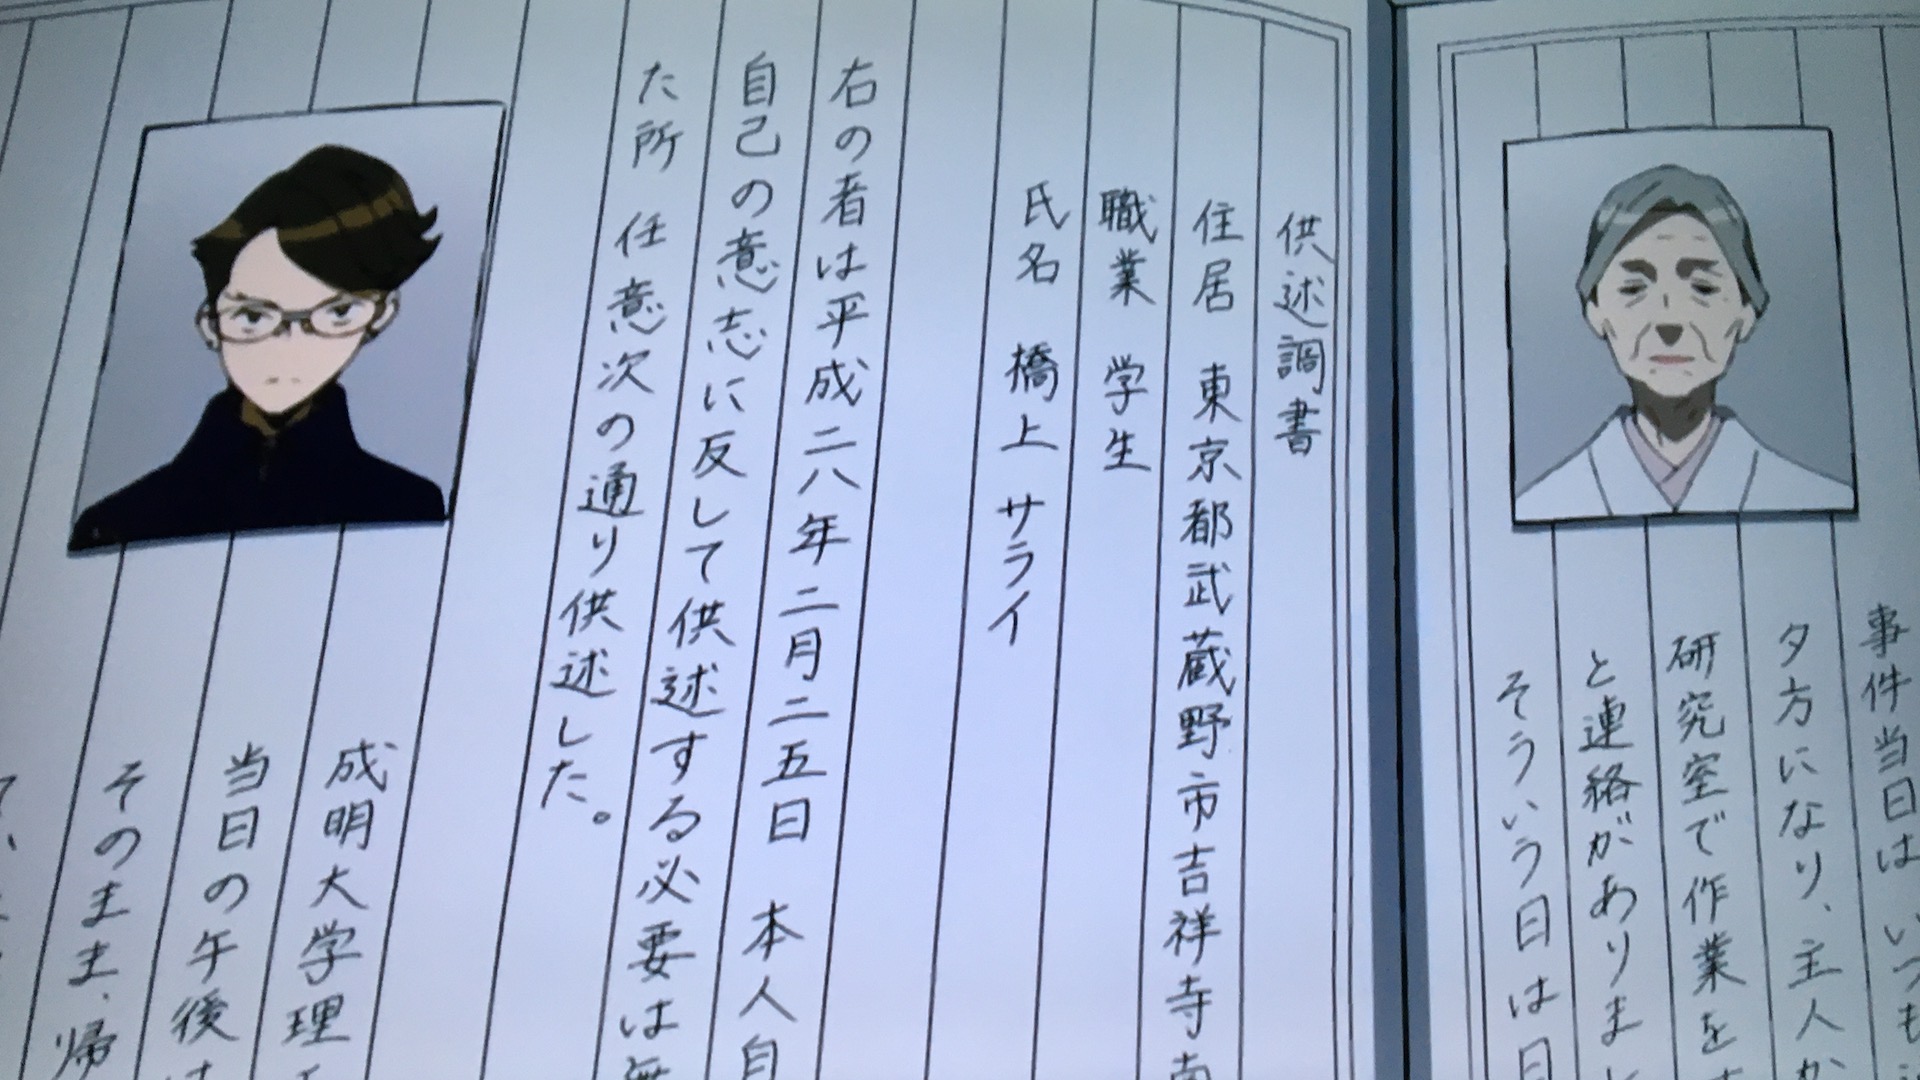 事件当日は いつも
夕方になり、主人か
研究室で作業を
と連絡がありまし
そういう日は日
供述調書
住居 東京都武蔵野市吉祥寺南
職業 学生
氏名 橋上 サライ
右の者は平成二八年二月二五日 本人自
自己の意志に反して供述する必要は無
た所 任意次の通り供述した。
成明大学理
当日の午後は
そのまま、帰
て、